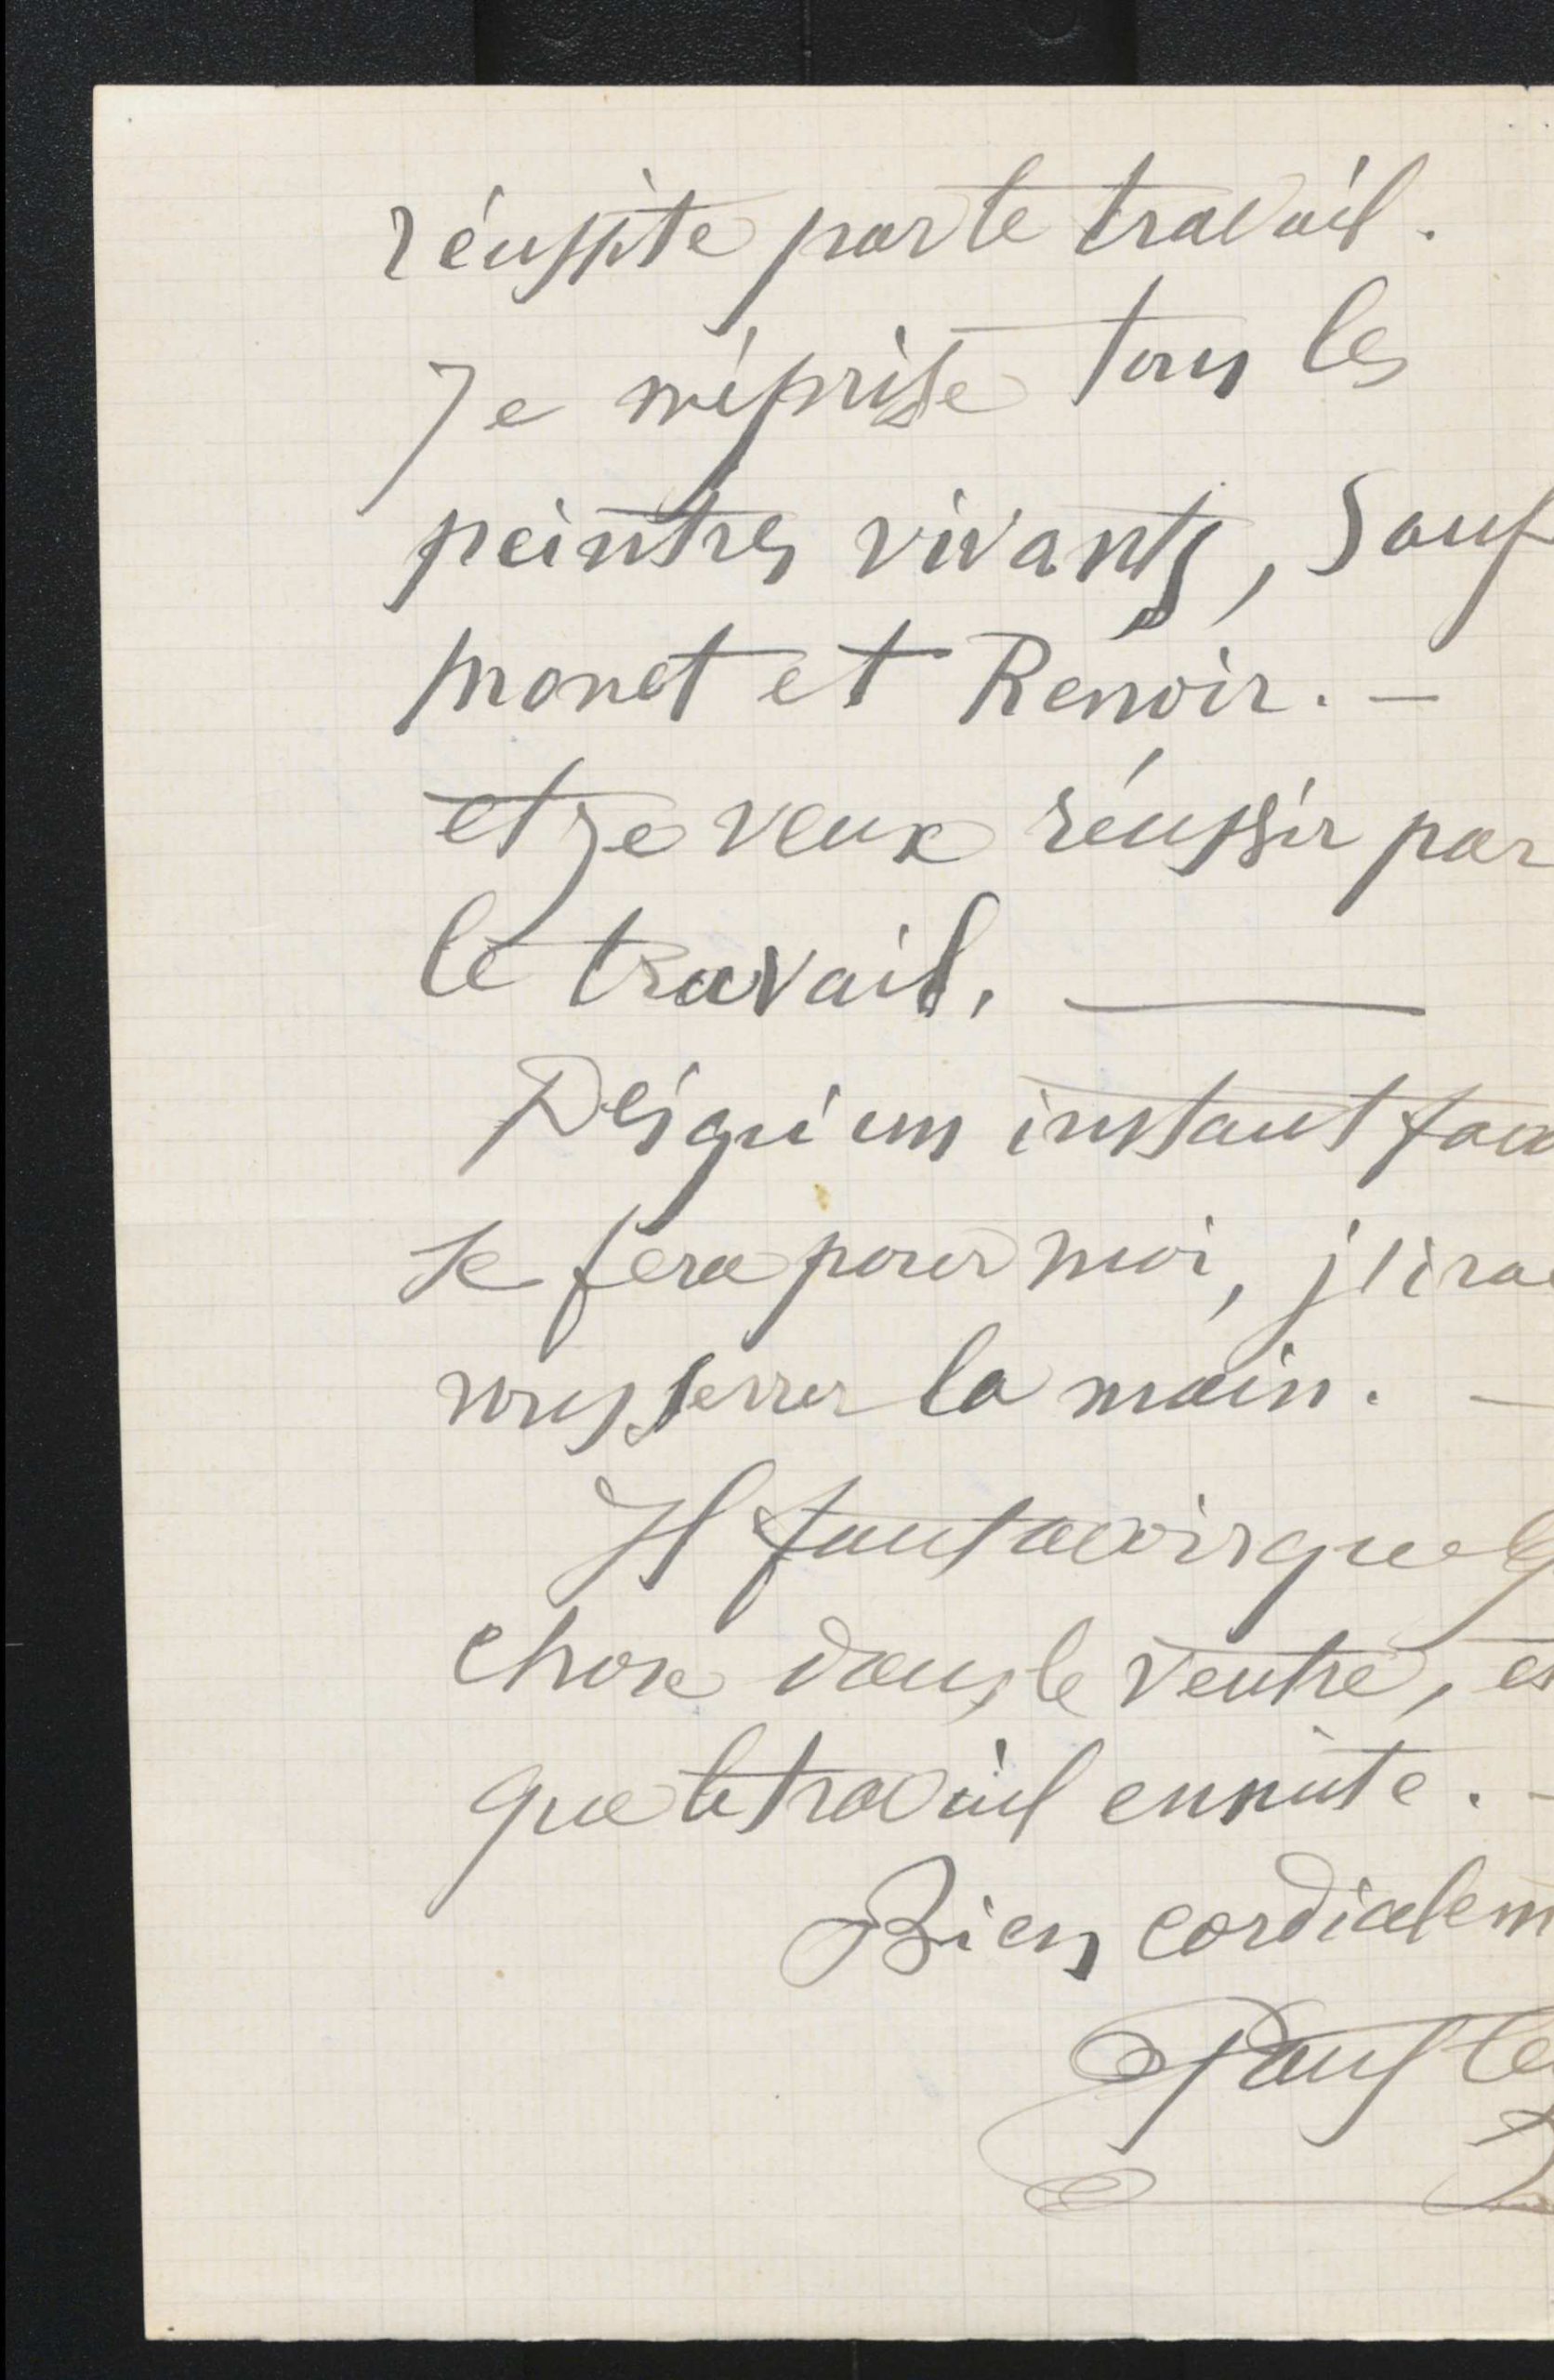 réussite par le travail.
Je méprise tous les
peintres vivants, sauf
monet et Renoir. —
et je veux réussir par
le travail. —
Dès qu'un instant
se fera pour moi, j'irai
vous serrer la main. —
Il faut avoir
chose dans le ventre,
que le travail ensuite. -
Bien cordialem
Paul Cé